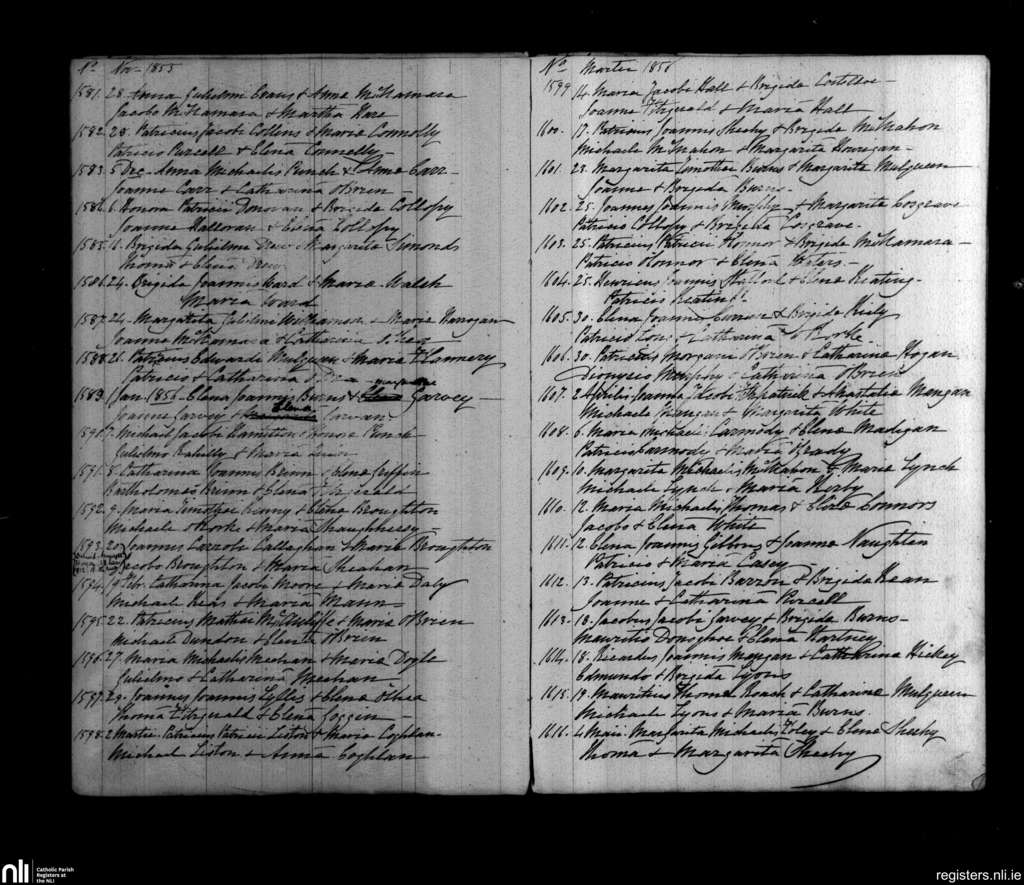 No Nov - 1855
1581. 28. Anna Gulielmi Evans & Anne McNamara
Jacobo McNamara & Martha Hare
1582. 28. Patricius Jacobi Collins & Marie Connolly
Patricio Purcell & Elena Connelly -
1583. 5 Dec - Anna Michaelis Punch & Anne Carr -
Joanne Carr & Catharina O'Brien -
1584. 6. Honora Patricii Donovan & Brigide Collopy
Joanne Halloran & Elena Collopy
1585. 11. Brigida Gulielmi Drew Margarita Simonds
Thoma & Elena Drew
1586. 24. Brigida Joannis Ward & Marie Walsh
Maria Ward
1587. 24. Margarita Gulielmi McNamara & Marie Hanigan
Joanne McNamara & Catharina
1588. 26. Patricius Edwardi Mulqueen & Maria Flannery
Patricio & Catharina
1589. Jan. 1856 - Elena Joannis Burns & Margarita Garvey -
Joanne Garvey & Elena
7. Michael Jacobi Hamilton & Honore Punch -
Gulielmo & Maria
1591. 8. Catharina Joannis Brien & Elene Griffin
Bartholomeo Brien & Elena Fitzgerald
1592. 9. Maria Timothei Kenny & Elena Broughton
Michaele O'Rorke & Maria Shaughnessy -
1593. 20. Joannes Caroli Callaghan & Marie Broughton
Jacobo Broughton & Maria Sheahan
1594. 19 Febr. Catharina Jacobi Moore & Marie Daly
Michaele Keas & Maria Mann -
1595. 22. Patricius Matthei McAuliffe & Marie O'Brien
Michaele Dundon & Elena O'Brien
1596. 27. Maria Michaelis Meehan & Marie Doyle
Gulielmo & Catharina Meehan -
1597. 29. Joannes Joannis Lyllis & Elene O'Shea
Thoma Fitzgerald & Elena Goggin
1598. 2 Martii Patricius Patricii Liston & Maria Coghlan -
Michael Liston & Anna Coghlan
No Martii 1856
1599 14. Maria Jacobi Hall & Brigida Costelloe -
Joanne Fitzgerald & Maria Hall
1600. 17. Patricius Joannis Sheehy & Brigide McMahon
Michaele McMahon & Margarita Hourigan -
1601. 23. Margarita Timothei Burns & Margarita Mulqueen
Joanne & Brigida Burns -
1602. 25. Joannes Joannis Murphy & Margarite Cosgrave
Patricio Collopy & Brigitta Cosgrave -
1603. 25. Patricius Patricii Konnor & Brigide McNamara -
Patricio O'Connor & Elena Waters -
1604. 25. Henricus Joannis & Elene Keating -
Patricio Keating
1605. 30. Elena Joannis Connor & Brigide Kiely
Patricio & Catharina O'Rorke.
1606. 30. Patricius Morgani O'Brien & Catharina Hogan
Dionysio Murphy & Catharina O'Brien
1607. 2 Aprilis Joanna Jacobi Fitzpatrick & Anastatia Mangan
Michaele Mangan & Margarita White
1608. 6. Maria Michaelis Carmody & Elene Madigan
Patricio Carmody & Maria Grady
1609. 10. Margarita Michaelis McMahon & Marie Lynch
Michaele Lynch & Maria Kerby
1610. 12. Maria Michaelis Thomas & Elene Connors
Jacobo & Elena White
1611. 12. Elena Joannis Gibbons & Joanne Naughten
Patricio & Maria Casey
1612. 13. Patricius Jacobi Barron & Brigida Kean
Joanne & Catharina Purcell
1613. 13. Jacobus Jacobi Garvey & Brigide Burns -
Mauritio Donoghoe & Elena Hartney
1614. 18. Ricardus Joannis Mangan & Catharina Hickey
Edmundo & Brigida Lyons
1615. 19. Mauritius Thome Roach & Catharine Mulqueen
Michaele Lyons & Maria Burns
1616. 4 Maii. Margarita Michaelis Foley & Elene Sheehy
Thoma & Margarita Sheehy
nli Catholic Parish
Registers at
the NLI
registers.nli.ie